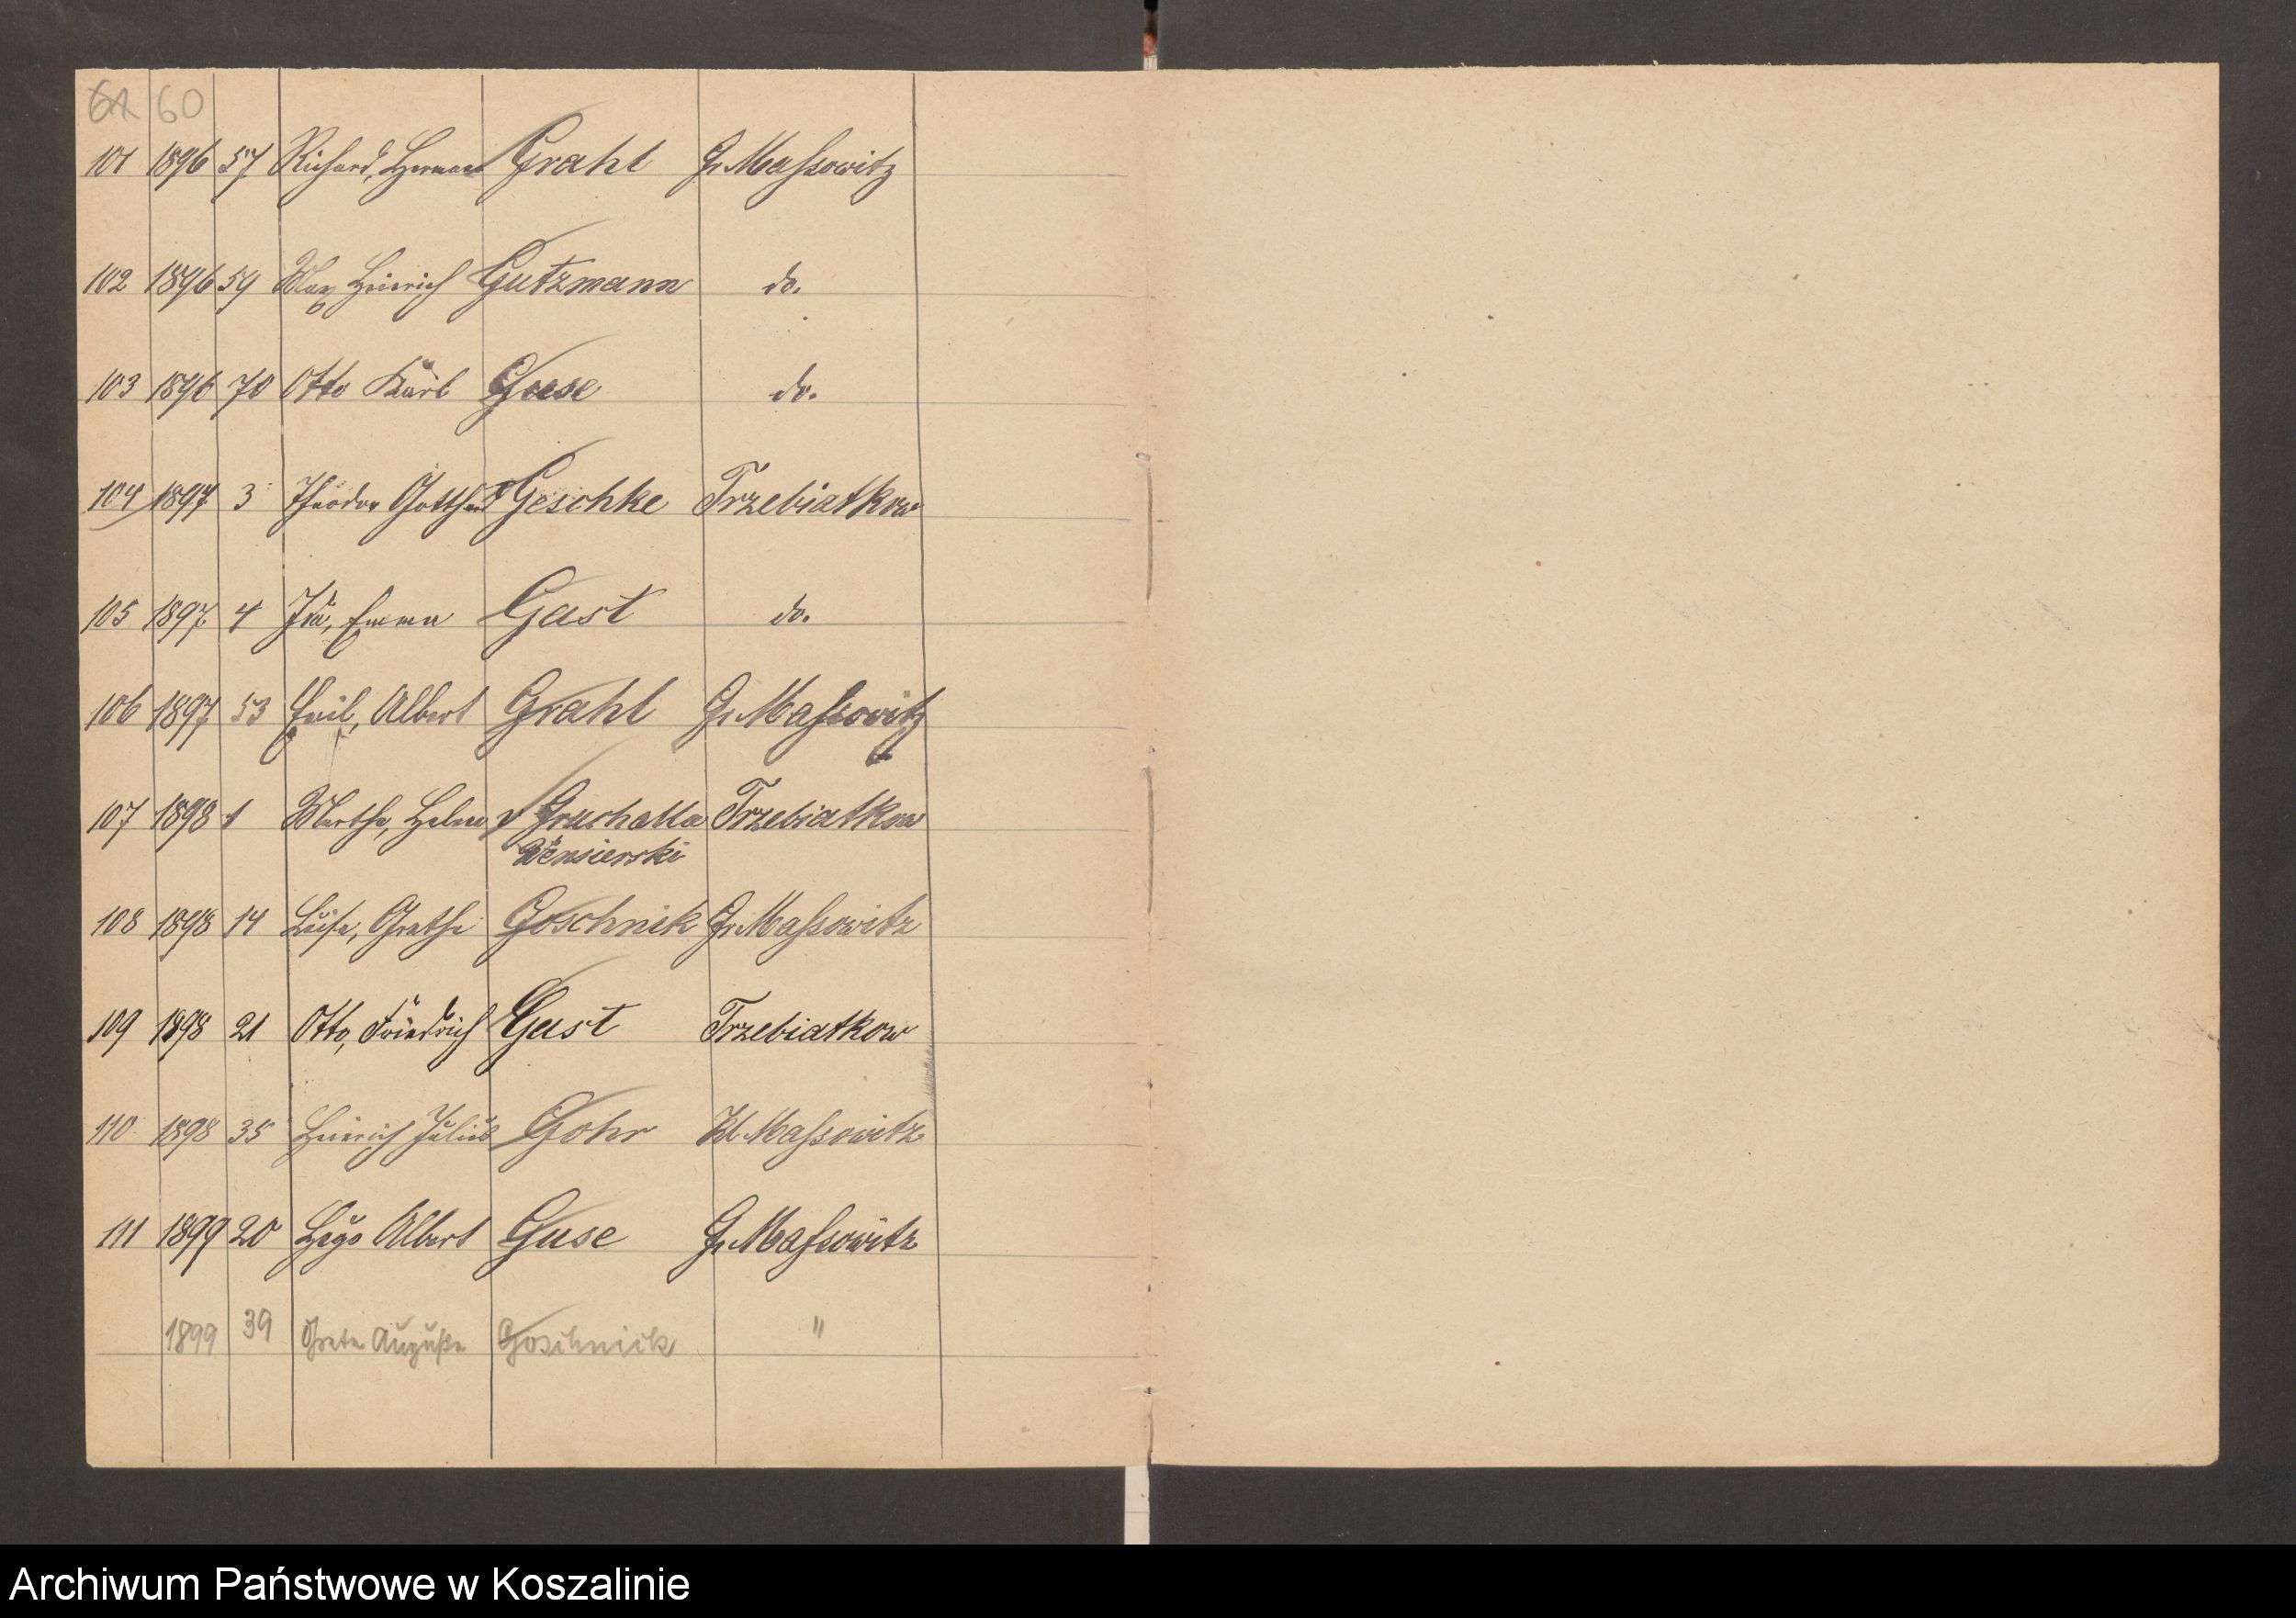 61 60
101 1896 57 Richard, Hermann Grahl Gr. Massowitz
102 1896 59 Max Heinrich Gutzmann do.
103 1896 70 Otto Karl Guse do.
104 1897 3 Theodor Gotthard Geschke Trzebiatkow
105 1897 4 Ida, Emma Gast do.
106 1897 53 Emil, Albert Grahl Gr. Massowitz
107 1898 1 Martha, Helene v Gruchalla Trzebiatkow
Wensierski
108 1898 14 Luise, Grethe Goschnik Gr. Massowitz
109 1898 21 Otto, Friedrich Gast Trzebiatkow
110 1898 35 Heinrich Julius Gohr Kl. Massowitz
111 1899 20 Hugo Albert Guse Gr. Massowitz
1899 39 Grete Auguste Goschnick "
Archiwum Państwowe w Koszalinie